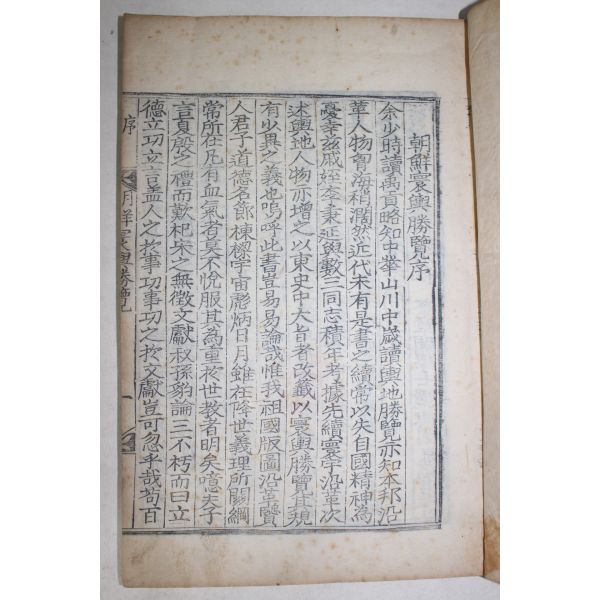 朝鮮寰輿勝覽序
余少時讀禹貢略知中華山川中歲讀輿地勝覽亦知本邦沿
革人物習海稍濶然近代未有是書之續常以失自國精神為
憂幸玆戚姪李秉延與數三同志積年考據先續寰宇沿革次
述輿地人物亦增之以東史中大旨者改籤以寰輿勝覽其規
有少異之義也嗚呼此書豈易易論哉惟我祖國版圖沿革賢
人君子道德名節棟樑宇宙彪炳日月雖在降世義理所關綱
常所在凡有血氣者莫不悅服其為重於世教者明矣噫夫子
言夏殷之禮而歎杞宋之無徵文獻叔孫豹論三不朽而曰立
德立功立言盖人之於事功事功之於文獻豈可忽乎哉苟百
序 朝鮮寰輿勝覽 一